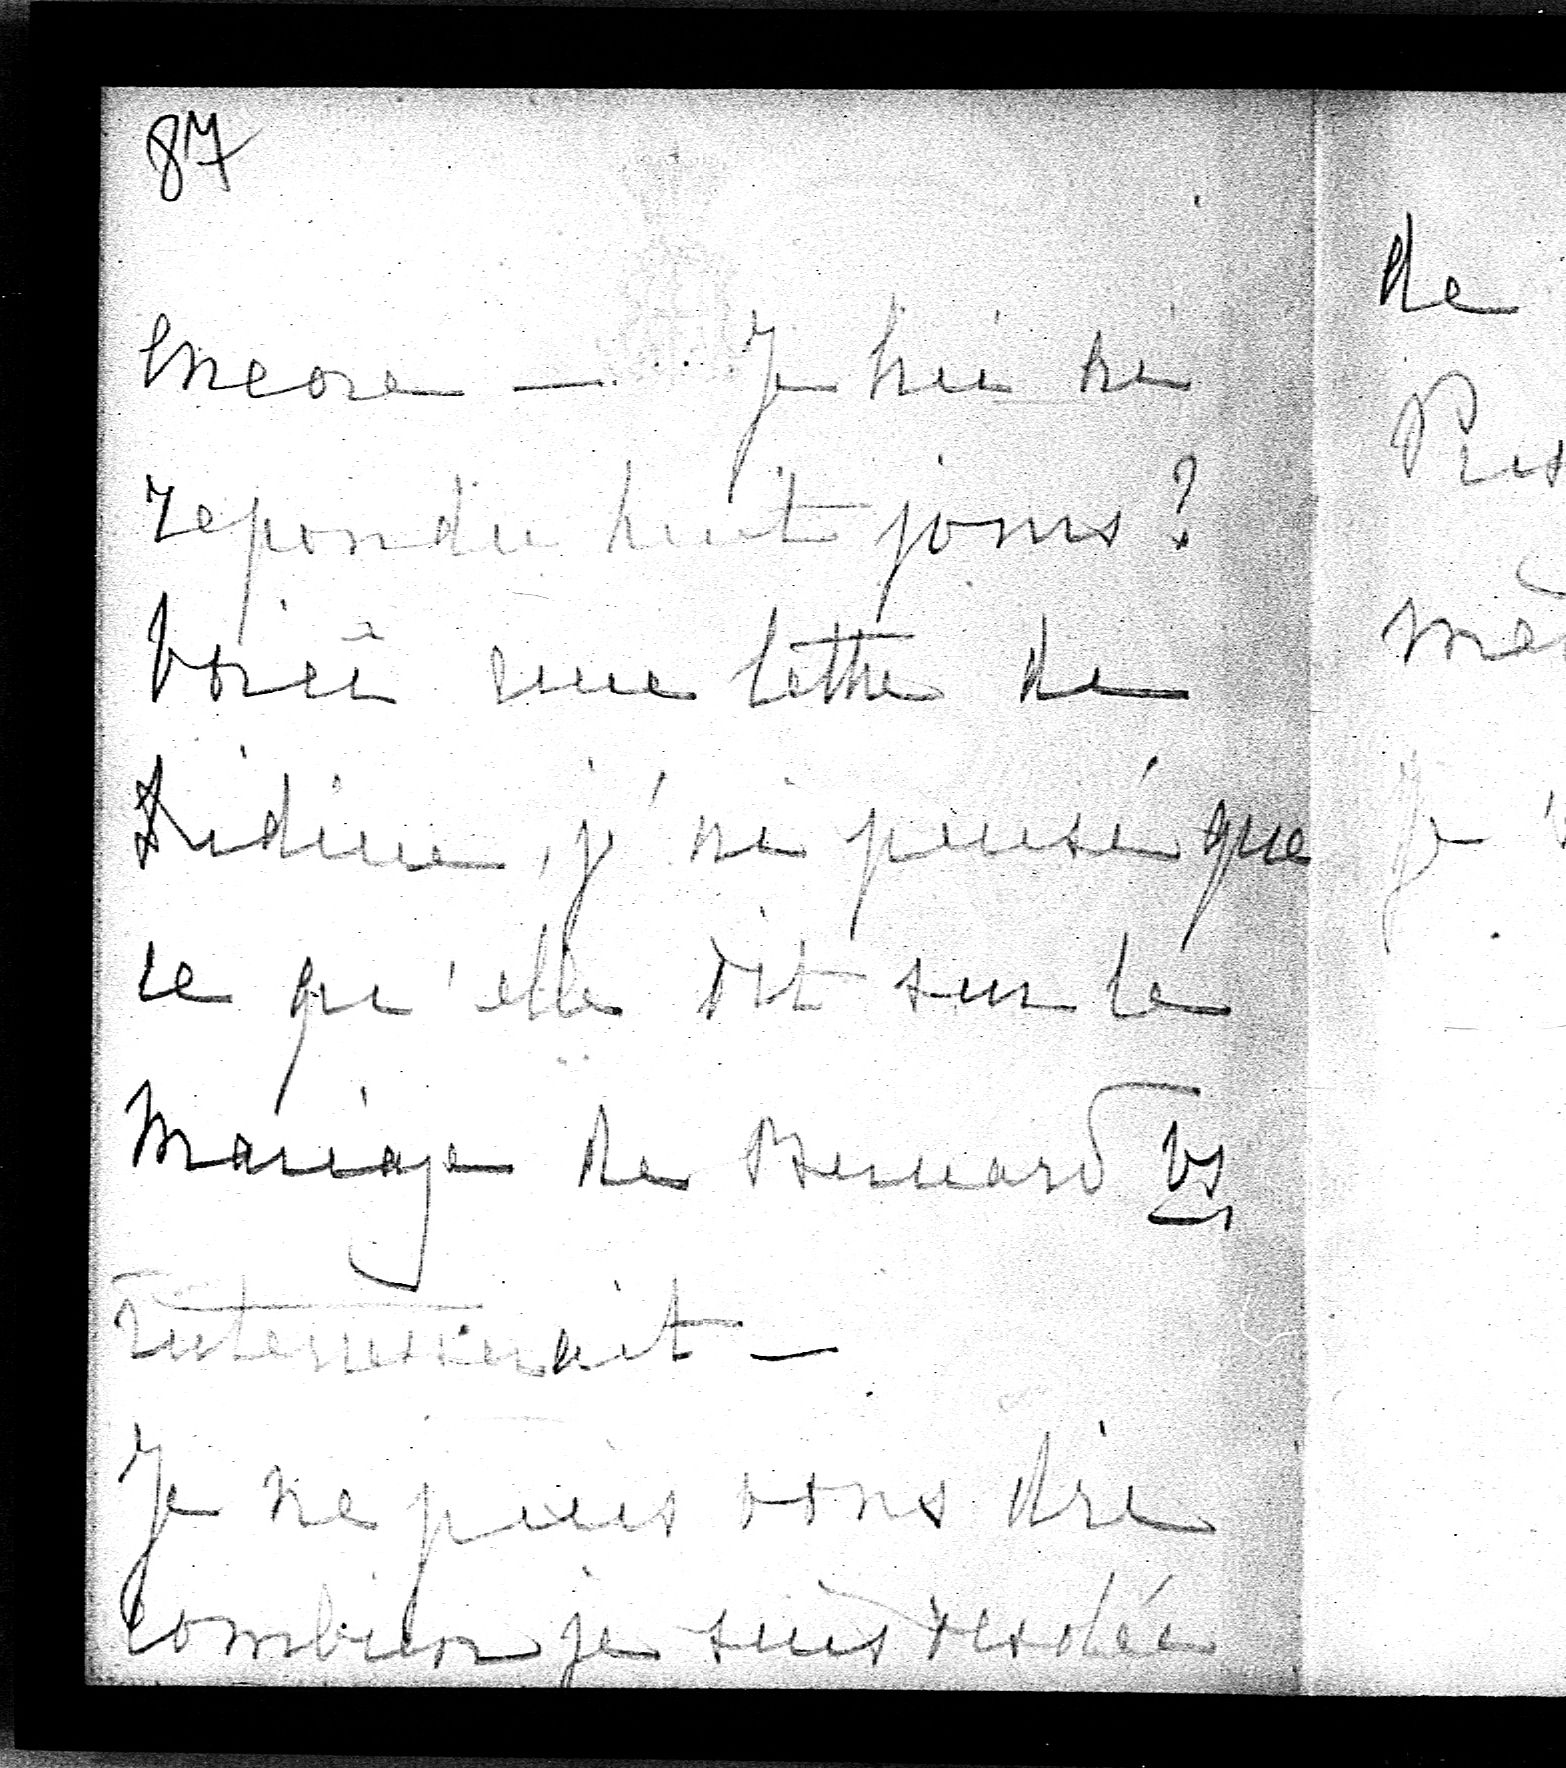 87
encore — Je lui ai
repondu huit jours ?
Voici une lettre de
Didine, j'ai pensé que
ce qu'elle dit sur le
mariage de Bernard vs
interesserait —
Je ne puis vous dire
combien je suis desolée
de
Je